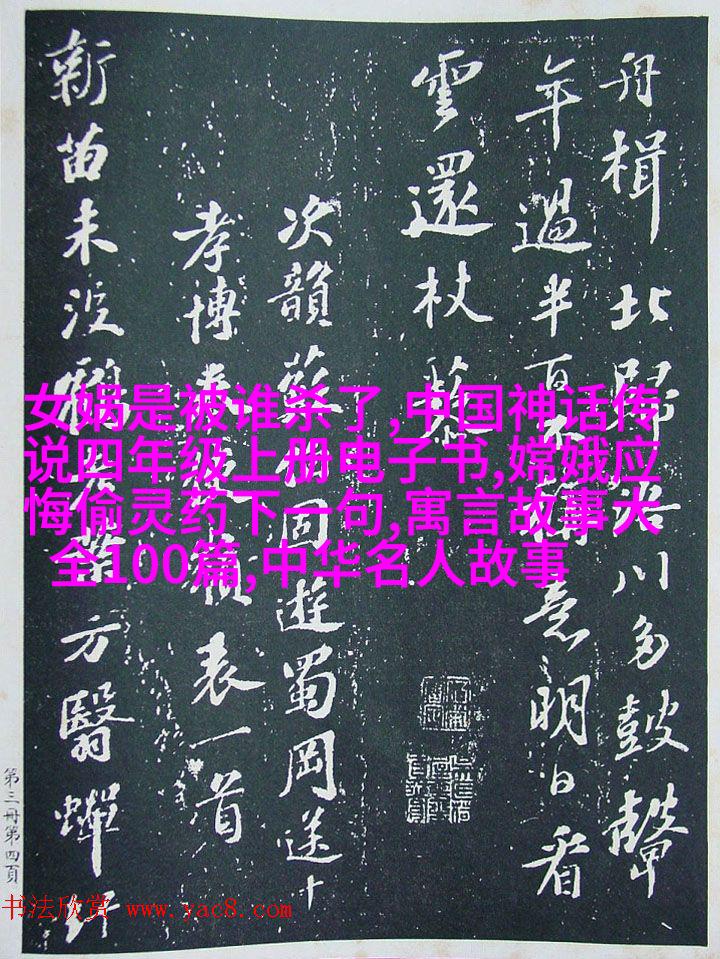 舟楫北歸秦川多鼓鼙
年過半百不稱意明日看
雲還杖藜
次韻蘇伯固遊蜀岡送
孝博奉使嶺表一首
新苗未没鶴老葉方翳蟬
女娲是被谁杀了,中国神话传
说四年级上册电子书,嫦娥应
悔偷灵药下一句,寓言故事大
全100篇,中华名人故事
第三冊第四頁
书法欣赏 www.yac8.com